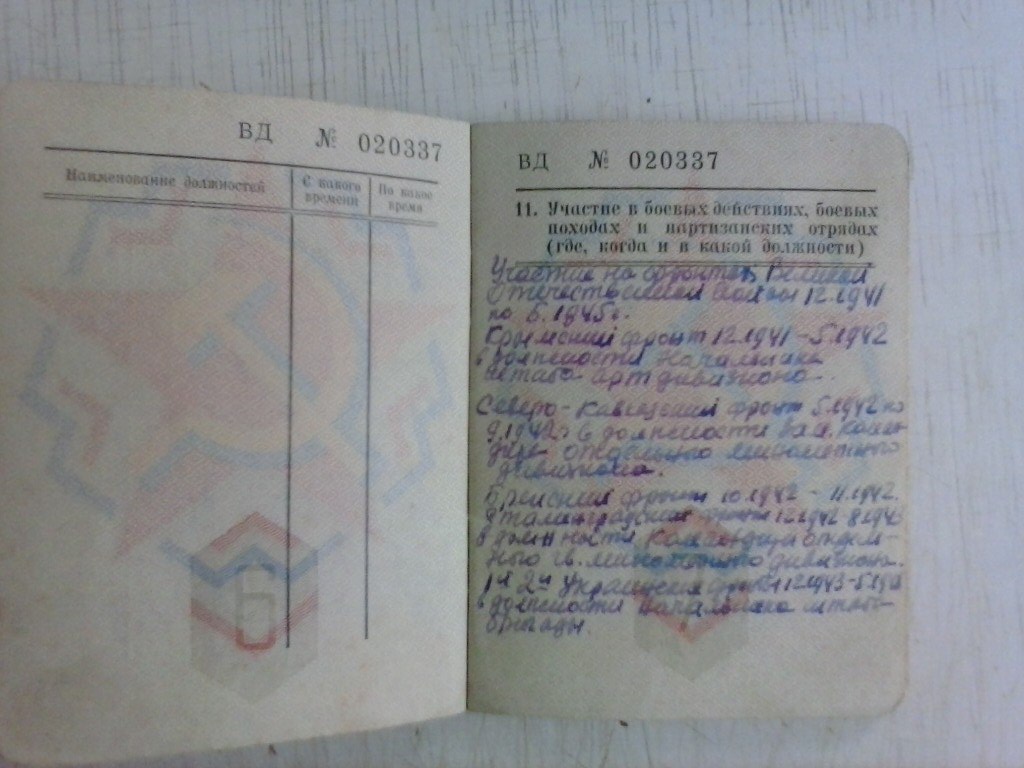 ВД № 020337
Наименование должностей
С какого времени
По какое время
ВД № 020337
11. Участие в боевых действиях, боевых
походах и партизанских отрядах
(где, когда и в какой должности)
Участие на фронтах Великой
Отечественной войны 12.1941
по 5.1945г.
Крымский фронт 12.1941-5.1942
в должности Начальника
штаба артдивизиона.
Северо-Кавказский фронт 5.1942 по
9.1942 в должности
отдельного минометного
дивизиона.
фронт 10.1942 - 11.1942.
Сталинградский фронт 12.1942
в должности Командира отдель-
ного гв. минометного дивизиона.
1й 2й Украинский фронт 12.1943-5.1945
в должности Начальника штаба
бригады.